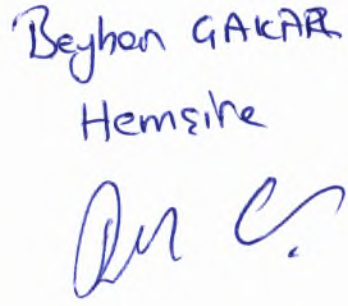 Beyhan GAKAR
Hemşire